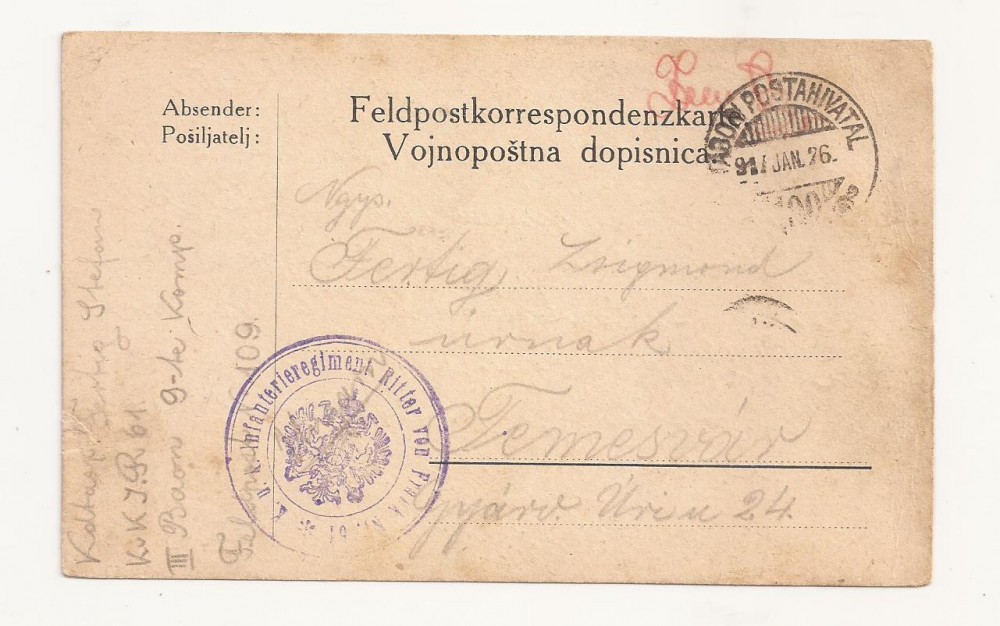 Absender:
Pošiljatelj:
Feldpostkorrespondenzkarte
Vojnopoštna dopisnica.
TÁBORI POSTAHIVATAL
917 JAN. 26.
Ngys.
Fertig Zsigmond
úrnak
Temesvár
Gyárv Úri u 24
K. u. K. Infanterieregiment Ritter von Frank Nr. 61
Fertig Stefan
K. u K I. R. 61.
III Baon 9-te Komp.
109.